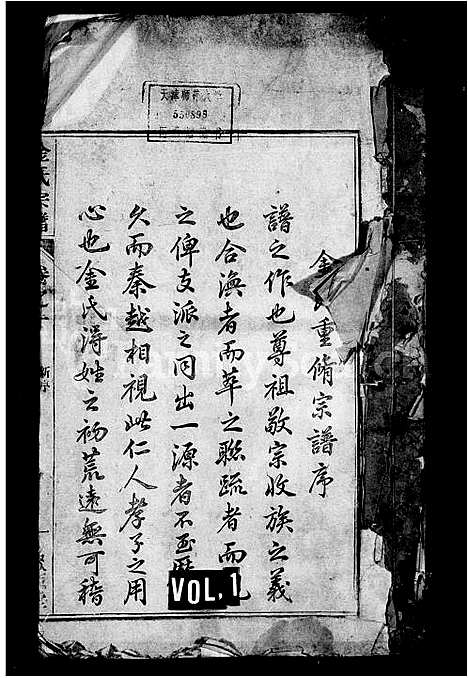 金 重脩宗譜序
譜之作也尊祖敬宗收族之義
也合渙者而萃之聯疏者而
之俾支派之同出一源者不至歷
久而秦越相視此仁人孝子之用
心也金氏得姓之初荒遠無可稽
金氏宗譜
卷之一
新序
一
天津師範
550899
VOL. 1